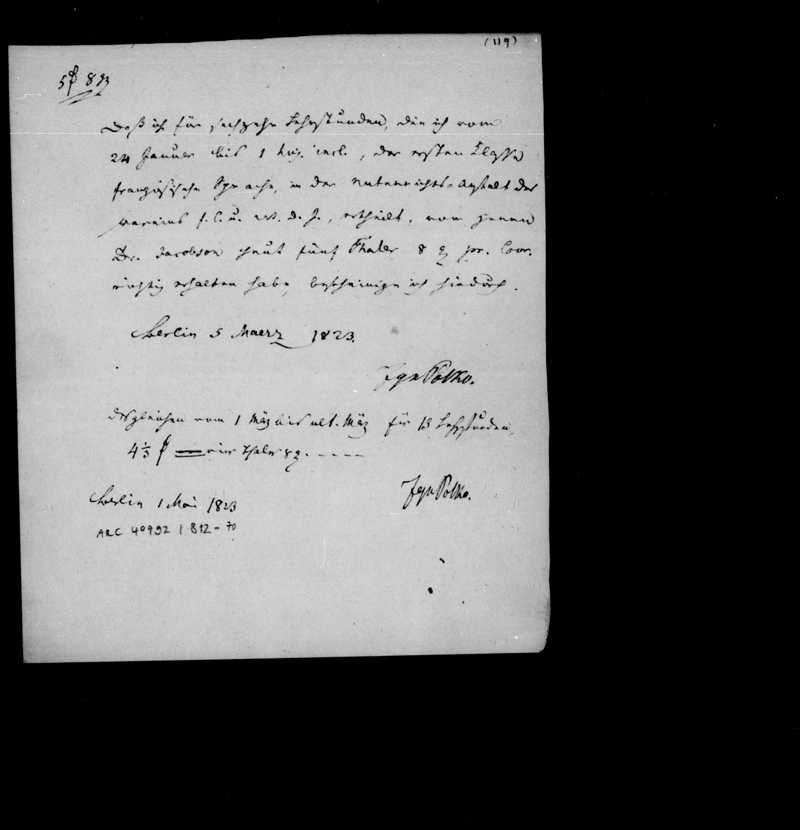 (119)
5 8
Daß ich für sechzehn Lehrstunden, die ich vom
24 Januar bis 1 incl., der ersten Classe
französische Sprache, in der Unterrichts-Anstalt des
Vereins f. C. u. W. d. J., ertheilt, von Herrn
Dr. Jacobson heut fünf Thaler 8 pr. Cour.
richtig erhalten habe, bescheinige ich hiedurch.
Berlin 5 Maerz 1823.
Desgleichen vom 1 März bis ult. März für 13 Lehrstunden,
4 1/3 = vier Thaler 8
Berlin 1 Mai 1823
ARC 40992 / B12-70